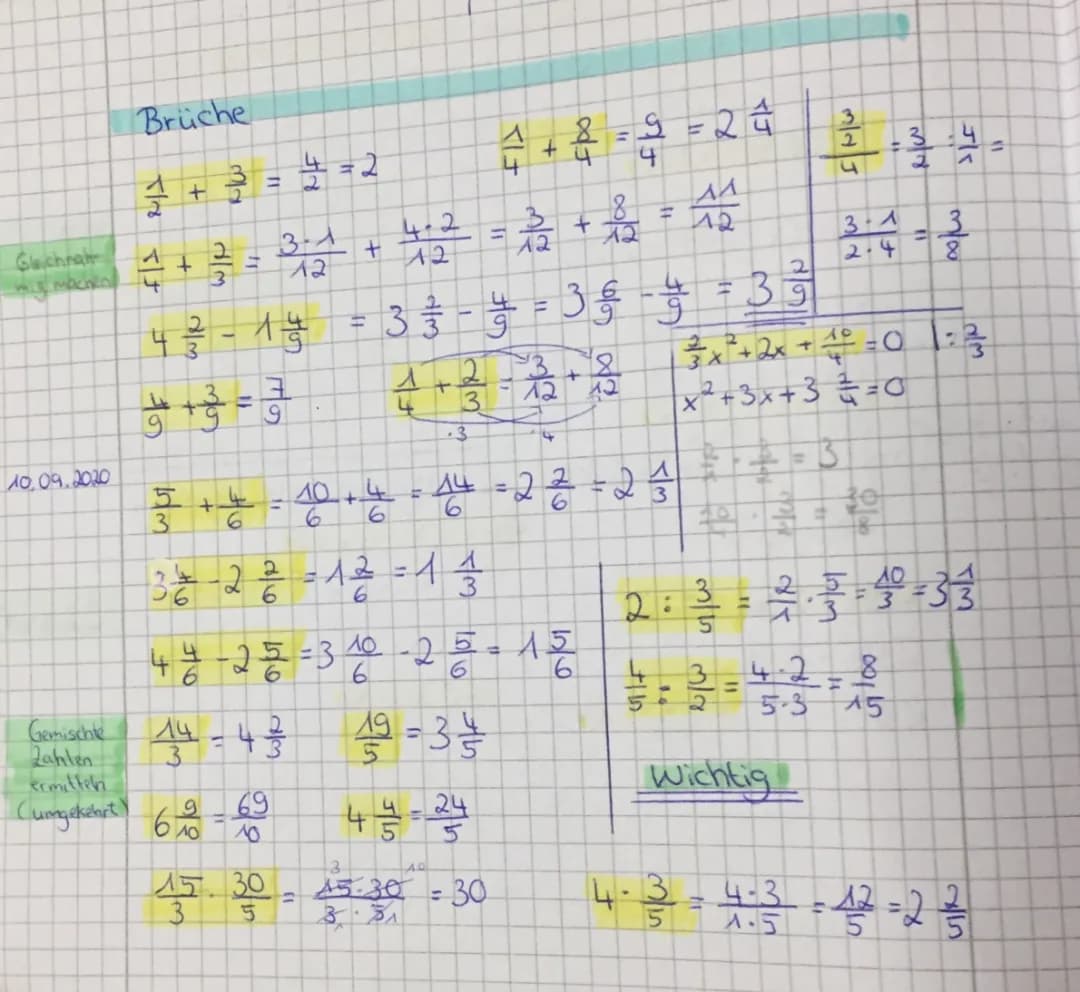 Brüche
1/2 + 3/2 = 4/2 = 2
1/4 + 8/4 = 9/4 = 2 1/4
(3/2)/4 = 3/2 : 4/1 =
(3·1)/(2·4) = 3/8
Gleichnam
mig machen
1/4 + 2/3 = (3·1)/12 + (4·2)/12 = 3/12 + 8/12 = 11/12
4 2/3 - 1 4/9 = 3 2/3 - 4/9 = 3 6/9 - 4/9 = 3 2/9
4/9 + 3/9 = 7/9
1/4 + 2/3 = 3/12 + 8/12
·3 ·4
2/3 x² + 2x + 10/4 = 0 | : 2/3
x² + 3x + 3 3/4 = 0
= 3
10.09.2020
5/3 + 4/6 = 10/6 + 4/6 = 14/6 = 2 2/6 = 2 1/3
3 4/6 - 2 2/6 = 1 2/6 = 1 1/3
4 4/6 - 2 5/6 = 3 10/6 - 2 5/6 = 1 5/6
2 : 3/5 = 2/1 · 5/3 = 10/3 = 3 1/3
4/5 : 3/2 = (4·2)/(5·3) = 8/15
Gemischte
Zahlen
ermitteln
(umgekehrt)
14/3 = 4 2/3
19/5 = 3 4/5
6 9/10 = 69/10
4 4/5 = 24/5
Wichtig
15/3 · 30/5 = (15·30)/(3·5) = 30
3 10
1 1
4 · 3/5 = (4·3)/(1·5) = 12/5 = 2 2/5